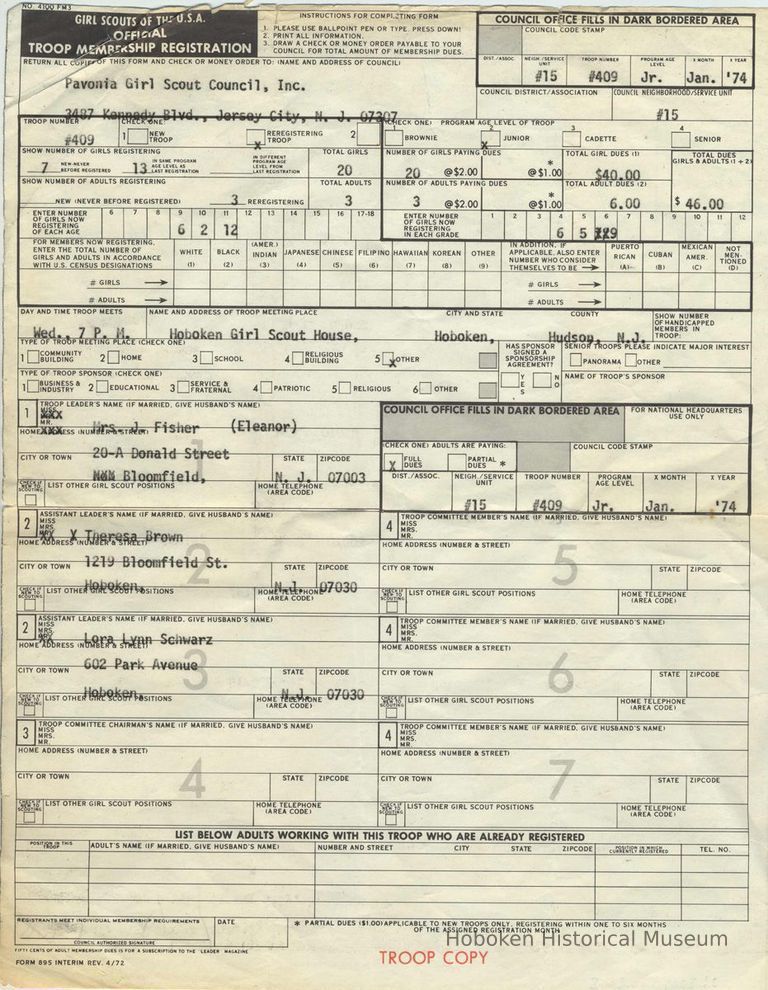 NO. 4100 FM3
GIRL SCOUTS OF THE U.S.A.
OFFICIAL
TROOP MEMBERSHIP REGISTRATION
INSTRUCTIONS FOR COMPLETING FORM
1. PLEASE USE BALLPOINT PEN OR TYPE. PRESS DOWN!
2. PRINT ALL INFORMATION.
3. DRAW A CHECK OR MONEY ORDER PAYABLE TO YOUR COUNCIL FOR TOTAL AMOUNT OF MEMBERSHIP DUES.
COUNCIL OFFICE FILLS IN DARK BORDERED AREA
COUNCIL CODE STAMP
DIST./ASSOC. NEIGH./SERVICE UNIT TROOP NUMBER PROGRAM AGE LEVEL X MONTH X YEAR
#15 #409 Jr. Jan. '74
RETURN ALL COPIES OF THIS FORM AND CHECK OR MONEY ORDER TO: (NAME AND ADDRESS OF COUNCIL)
Pavonia Girl Scout Council, Inc.
3487 Kennedy Blvd., Jersey City, N. J. 07307
COUNCIL DISTRICT/ASSOCIATION COUNCIL NEIGHBORHOOD/SERVICE UNIT
#15
TROOP NUMBER CHECK ONE:
#409 1 NEW TROOP X REREGISTERING TROOP 2
(CHECK ONE) PROGRAM AGE LEVEL OF TROOP
1 BROWNIE 2 X JUNIOR 3 CADETTE 4 SENIOR
SHOW NUMBER OF GIRLS REGISTERING TOTAL GIRLS
7 NEW-NEVER BEFORE REGISTERED 13 IN SAME PROGRAM AGE LEVEL AS LAST REGISTRATION IN DIFFERENT PROGRAM AGE LEVEL FROM LAST REGISTRATION 20
NUMBER OF GIRLS PAYING DUES TOTAL GIRL DUES (1) TOTAL DUES GIRLS & ADULTS (1 + 2)
20 @$2.00 * @$1.00 $40.00
SHOW NUMBER OF ADULTS REGISTERING TOTAL ADULTS
NEW (NEVER BEFORE REGISTERED) 3 REREGISTERING 3
NUMBER OF ADULTS PAYING DUES TOTAL ADULT DUES (2)
3 @$2.00 * @$1.00 6.00 $ 46.00
ENTER NUMBER OF GIRLS NOW REGISTERING OF EACH AGE 6 7 8 9 10 11 12 13 14 15 16 17-18
6 2 12
ENTER NUMBER OF GIRLS NOW REGISTERING IN EACH GRADE 1 2 3 4 5 6 7 8 9 10 11 12
6 5 9
FOR MEMBERS NOW REGISTERING, ENTER THE TOTAL NUMBER OF GIRLS AND ADULTS IN ACCORDANCE WITH U.S. CENSUS DESIGNATIONS
WHITE (1) BLACK (2) (AMER.) INDIAN (3) JAPANESE (4) CHINESE (5) FILIPINO (6) HAWAIIAN (7) KOREAN (8) OTHER (9)
IN ADDITION, IF APPLICABLE, ALSO ENTER NUMBER WHO CONSIDER THEMSELVES TO BE
PUERTO RICAN (A) CUBAN (B) MEXICAN AMER. (C) NOT MENTIONED (D)
# GIRLS # GIRLS
# ADULTS # ADULTS
DAY AND TIME TROOP MEETS NAME AND ADDRESS OF TROOP MEETING PLACE CITY AND STATE COUNTY SHOW NUMBER OF HANDICAPPED MEMBERS IN TROOP:
Wed., 7 P. M. Hoboken Girl Scout House, Hoboken, Hudson, N.J.
TYPE OF TROOP MEETING PLACE (CHECK ONE)
1 COMMUNITY BUILDING 2 HOME 3 SCHOOL 4 RELIGIOUS BUILDING 5 X OTHER
HAS SPONSOR SIGNED A SPONSORSHIP AGREEMENT? YES NO
SENIOR TROOPS PLEASE INDICATE MAJOR INTEREST
PANORAMA OTHER
TYPE OF TROOP SPONSOR (CHECK ONE)
1 BUSINESS & INDUSTRY 2 EDUCATIONAL 3 SERVICE & FRATERNAL 4 PATRIOTIC 5 RELIGIOUS 6 OTHER
NAME OF TROOP'S SPONSOR
1 TROOP LEADER'S NAME (IF MARRIED, GIVE HUSBAND'S NAME)
MISS MRS. MR. Mrs. J. Fisher (Eleanor)
HOME ADDRESS (NUMBER & STREET)
20-A Donald Street
CITY OR TOWN STATE ZIPCODE
Bloomfield, N. J. 07003
CHECK IF NEW TO SCOUTING LIST OTHER GIRL SCOUT POSITIONS HOME TELEPHONE (AREA CODE)
1
COUNCIL OFFICE FILLS IN DARK BORDERED AREA
FOR NATIONAL HEADQUARTERS USE ONLY
(CHECK ONE) ADULTS ARE PAYING:
X FULL DUES PARTIAL DUES *
COUNCIL CODE STAMP
DIST./ASSOC. NEIGH./SERVICE UNIT TROOP NUMBER PROGRAM AGE LEVEL X MONTH X YEAR
#15 #409 Jr. Jan. '74
2 ASSISTANT LEADER'S NAME (IF MARRIED, GIVE HUSBAND'S NAME)
MISS MRS. MR. X Theresa Brown
HOME ADDRESS (NUMBER & STREET)
1219 Bloomfield St.
CITY OR TOWN STATE ZIPCODE
Hoboken, N.J. 07030
CHECK IF NEW TO SCOUTING LIST OTHER GIRL SCOUT POSITIONS HOME TELEPHONE (AREA CODE)
2
4 TROOP COMMITTEE MEMBER'S NAME (IF MARRIED, GIVE HUSBAND'S NAME)
MISS MRS. MR.
HOME ADDRESS (NUMBER & STREET)
CITY OR TOWN STATE ZIPCODE
CHECK IF NEW TO SCOUTING LIST OTHER GIRL SCOUT POSITIONS HOME TELEPHONE (AREA CODE)
5
2 ASSISTANT LEADER'S NAME (IF MARRIED, GIVE HUSBAND'S NAME)
MISS MRS. MR. Lora Lynn Schwarz
HOME ADDRESS (NUMBER & STREET)
602 Park Avenue
CITY OR TOWN STATE ZIPCODE
Hoboken, N.J. 07030
CHECK IF NEW TO SCOUTING LIST OTHER GIRL SCOUT POSITIONS HOME TELEPHONE (AREA CODE)
3
4 TROOP COMMITTEE MEMBER'S NAME (IF MARRIED, GIVE HUSBAND'S NAME)
MISS MRS. MR.
HOME ADDRESS (NUMBER & STREET)
CITY OR TOWN STATE ZIPCODE
CHECK IF NEW TO SCOUTING LIST OTHER GIRL SCOUT POSITIONS HOME TELEPHONE (AREA CODE)
6
3 TROOP COMMITTEE CHAIRMAN'S NAME (IF MARRIED, GIVE HUSBAND'S NAME)
MISS MRS. MR.
HOME ADDRESS (NUMBER & STREET)
CITY OR TOWN STATE ZIPCODE
CHECK IF NEW TO SCOUTING LIST OTHER GIRL SCOUT POSITIONS HOME TELEPHONE (AREA CODE)
4
4 TROOP COMMITTEE MEMBER'S NAME (IF MARRIED, GIVE HUSBAND'S NAME)
MISS MRS. MR.
HOME ADDRESS (NUMBER & STREET)
CITY OR TOWN STATE ZIPCODE
CHECK IF NEW TO SCOUTING LIST OTHER GIRL SCOUT POSITIONS HOME TELEPHONE (AREA CODE)
7
LIST BELOW ADULTS WORKING WITH THIS TROOP WHO ARE ALREADY REGISTERED
POSITION IN THIS TROOP ADULT'S NAME (IF MARRIED, GIVE HUSBAND'S NAME) NUMBER AND STREET CITY STATE ZIPCODE POSITION IN WHICH CURRENTLY REGISTERED TEL. NO.
REGISTRANTS MEET INDIVIDUAL MEMBERSHIP REQUIREMENTS DATE
COUNCIL AUTHORIZED SIGNATURE
* PARTIAL DUES ($1.00) APPLICABLE TO NEW TROOPS ONLY, REGISTERING WITHIN ONE TO SIX MONTHS OF THE ASSIGNED REGISTRATION MONTH
FIFTY CENTS OF ADULT MEMBERSHIP DUES IS FOR A SUBSCRIPTION TO THE "LEADER" MAGAZINE
FORM 895 INTERIM REV. 4/72
TROOP COPY
Hoboken Historical Museum